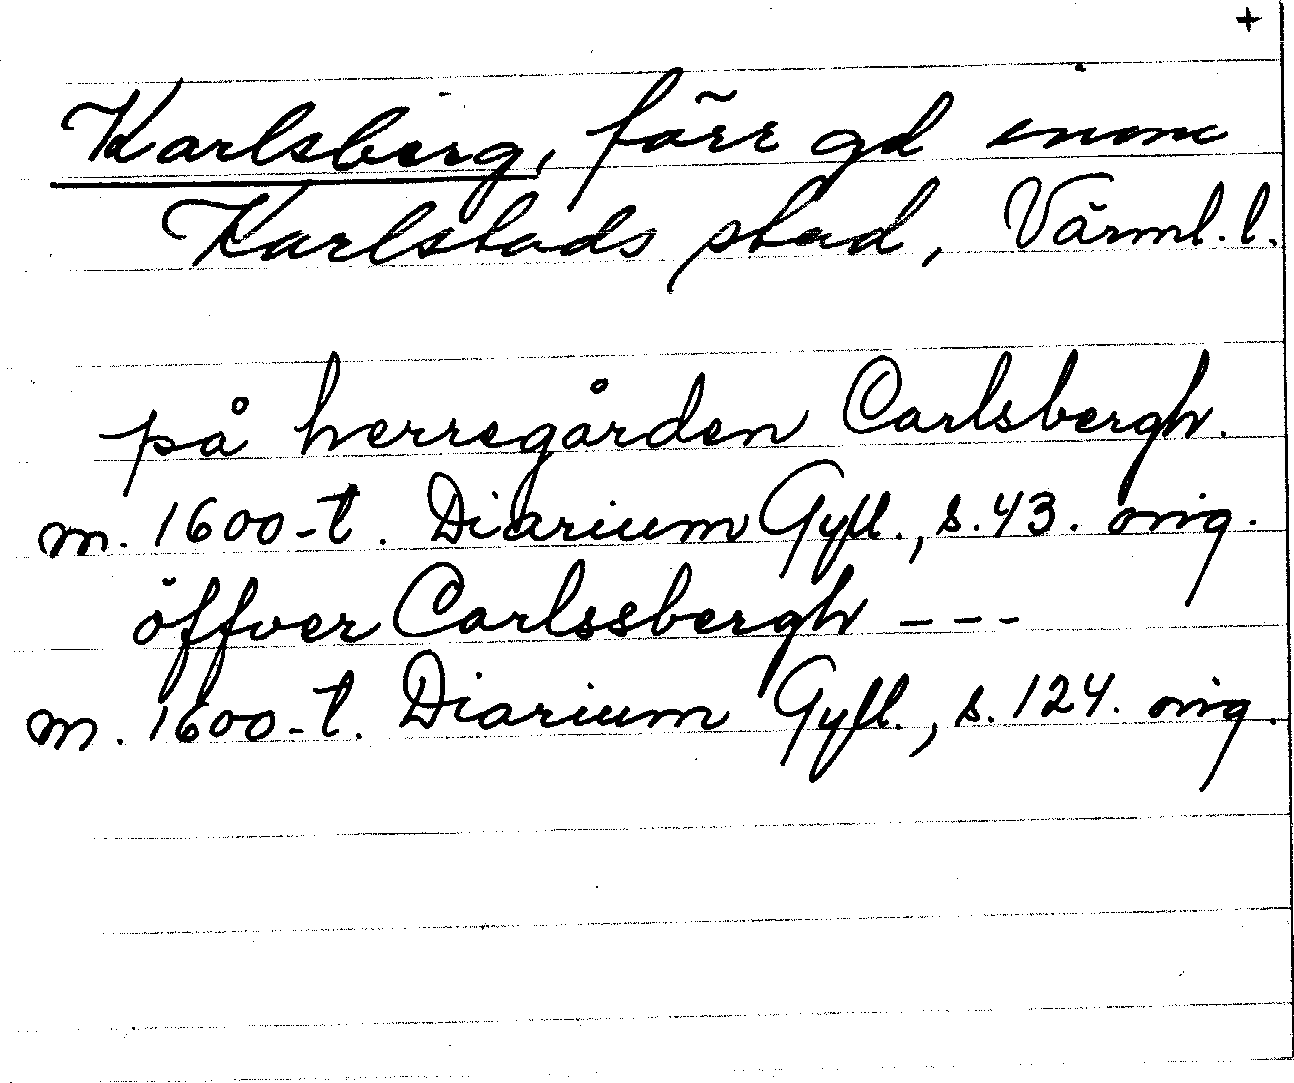 +
Karlsberg, förr gd inom
Karlstads stad, Värml. l.
på herregården Carlsbergh.
m. 1600-t. Diarium Gyll., s. 43. orig.
öffver Carlssbergh - - -
m. 1600-t. Diarium Gyll., s. 124. orig.